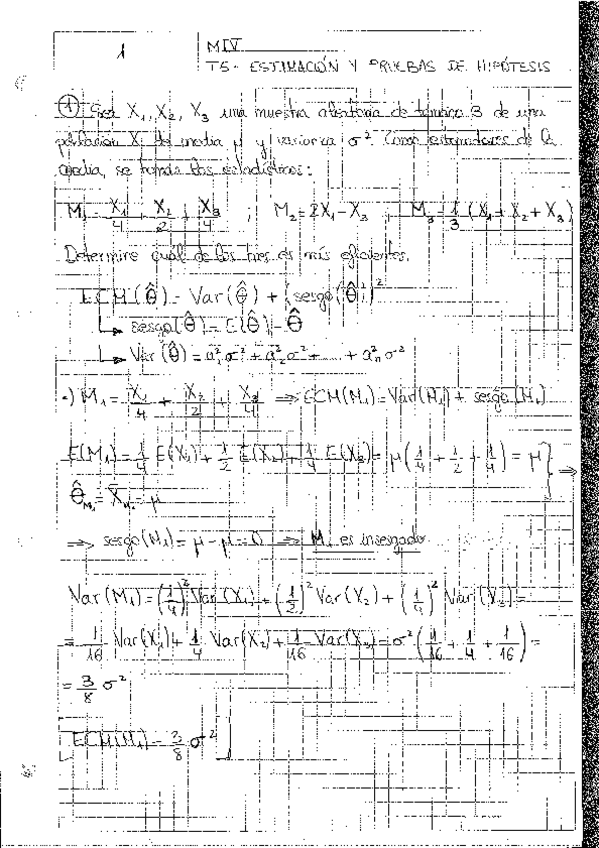 1
MIV
T5 - ESTIMACIÓN Y PRUEBAS DE HIPÓTESIS
① Sea X₁, X₂, X₃ una muestra aleatoria de tamaño 3 de una
población X de media μ y varianza σ². Como estimadores de la
media, se toman los estadísticos:
M₁ = X₁/4 + X₂/2 + X₃/4 ; M₂ = 2X₁ - X₃ , M₃ = 1/3 (X₁ + X₂ + X₃)
Determine cuál de los tres es más eficientes.
ECM(θ̂) = Var(θ̂) + (sesgo(θ̂))²
↳ sesgo(θ̂) = E(θ̂) - θ̂
↳ Var(θ̂) = a₁²σ² + a₂²σ² + .... + aₙ²σ²
•) M₁ = X₁/4 + X₂/2 + X₃/4 ⇒ ECM(M₁) = Var(M₁) + sesgo(M₁)
E(M₁) = 1/4 E(X₁) + 1/2 E(X₂) + 1/4 E(X₃) = μ(1/4 + 1/2 + 1/4) = μ } ⇒
θ̂ₘ₁ = X̄ₘ₁ = μ
⇒ sesgo(M₁) = μ - μ = 0 ⇒ M₁ es insesgado
Var(M₁) = (1/4)² Var(X₁) + (1/2)² Var(X₂) + (1/4)² Var(X₃) =
= 1/16 Var(X₁) + 1/4 Var(X₂) + 1/16 Var(X₃) = σ² (1/16 + 1/4 + 1/16) =
= 3/8 σ²
ECM(M₁) = 3/8 σ²